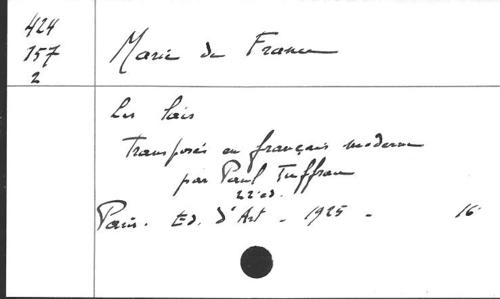 424
157
2
Marie de France
Les lais
transposés en français moderne
par Paul Tuffrau
22e ed.
Paris. Ed. d'Art - 1925 - 16°